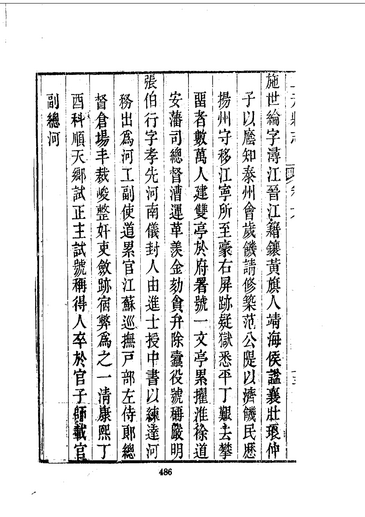 施世綸字潯江晉江籍鑲黃旗人靖海侯諡襄壯琅仲
子以廕知泰州會歲饑請修築范公隄以濟饑民歴
揚州守移江寧所至豪右屏跡疑獄悉平丁艱去攀
畱者數萬人建雙亭於府署號一文亭累擢淮徐道
安藩司總督漕運革羨金劾貪弁除蠹役號稱嚴明
張伯行字孝先河南儀封人由進士授中書以練達河
務出為河工副使道累官江蘇巡撫戶部左侍郎總
督倉場丰裁峻整奸吏斂跡宿弊為之一清康熙丁
酉科順天鄉試正主試號稱得人卒於官子師載官
副總河
486